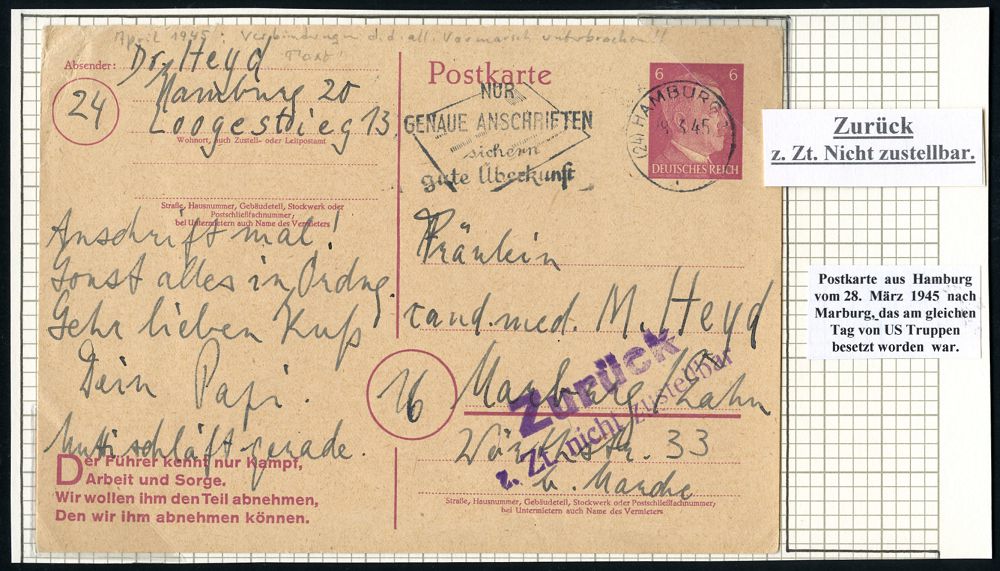 April 1945: Verbindungen d. d. all. Vormarsch unterbrochen!!
Absender:
Dr. Heyd
24
Hamburg 20
Loogestieg 13.
Wohnort, auch Zustell- oder Leitpostamt
Straße, Hausnummer, Gebäudeteil, Stockwerk oder
Postschließfachnummer;
bei Untermietern auch Name des Vermieters
Anschrift mal!
Sonst alles in Ordng.
Sehr lieben Kuß
Dein Papi.
Mutti schläft gerade.
Der Führer kennt nur Kampf,
Arbeit und Sorge.
Wir wollen ihm den Teil abnehmen,
Den wir ihm abnehmen können.
Postkarte
NUR
GENAUE ANSCHRIFTEN
sichern
gute Überkunft
6 6
(24) HAMBURG
3.45
DEUTSCHES REICH
Fräulein
cand. med. M. Heyd
16
Marburg/Lahn
33
b.
Straße, Hausnummer, Gebäudeteil, Stockwerk oder Postschließfachnummer;
bei Untermietern auch Name des Vermieters
Zurück
z. Zt. nicht zustellbar
Zurück
z. Zt. Nicht zustellbar.
Postkarte aus Hamburg
vom 28. März 1945 nach
Marburg, das am gleichen
Tag von US Truppen
besetzt worden war.